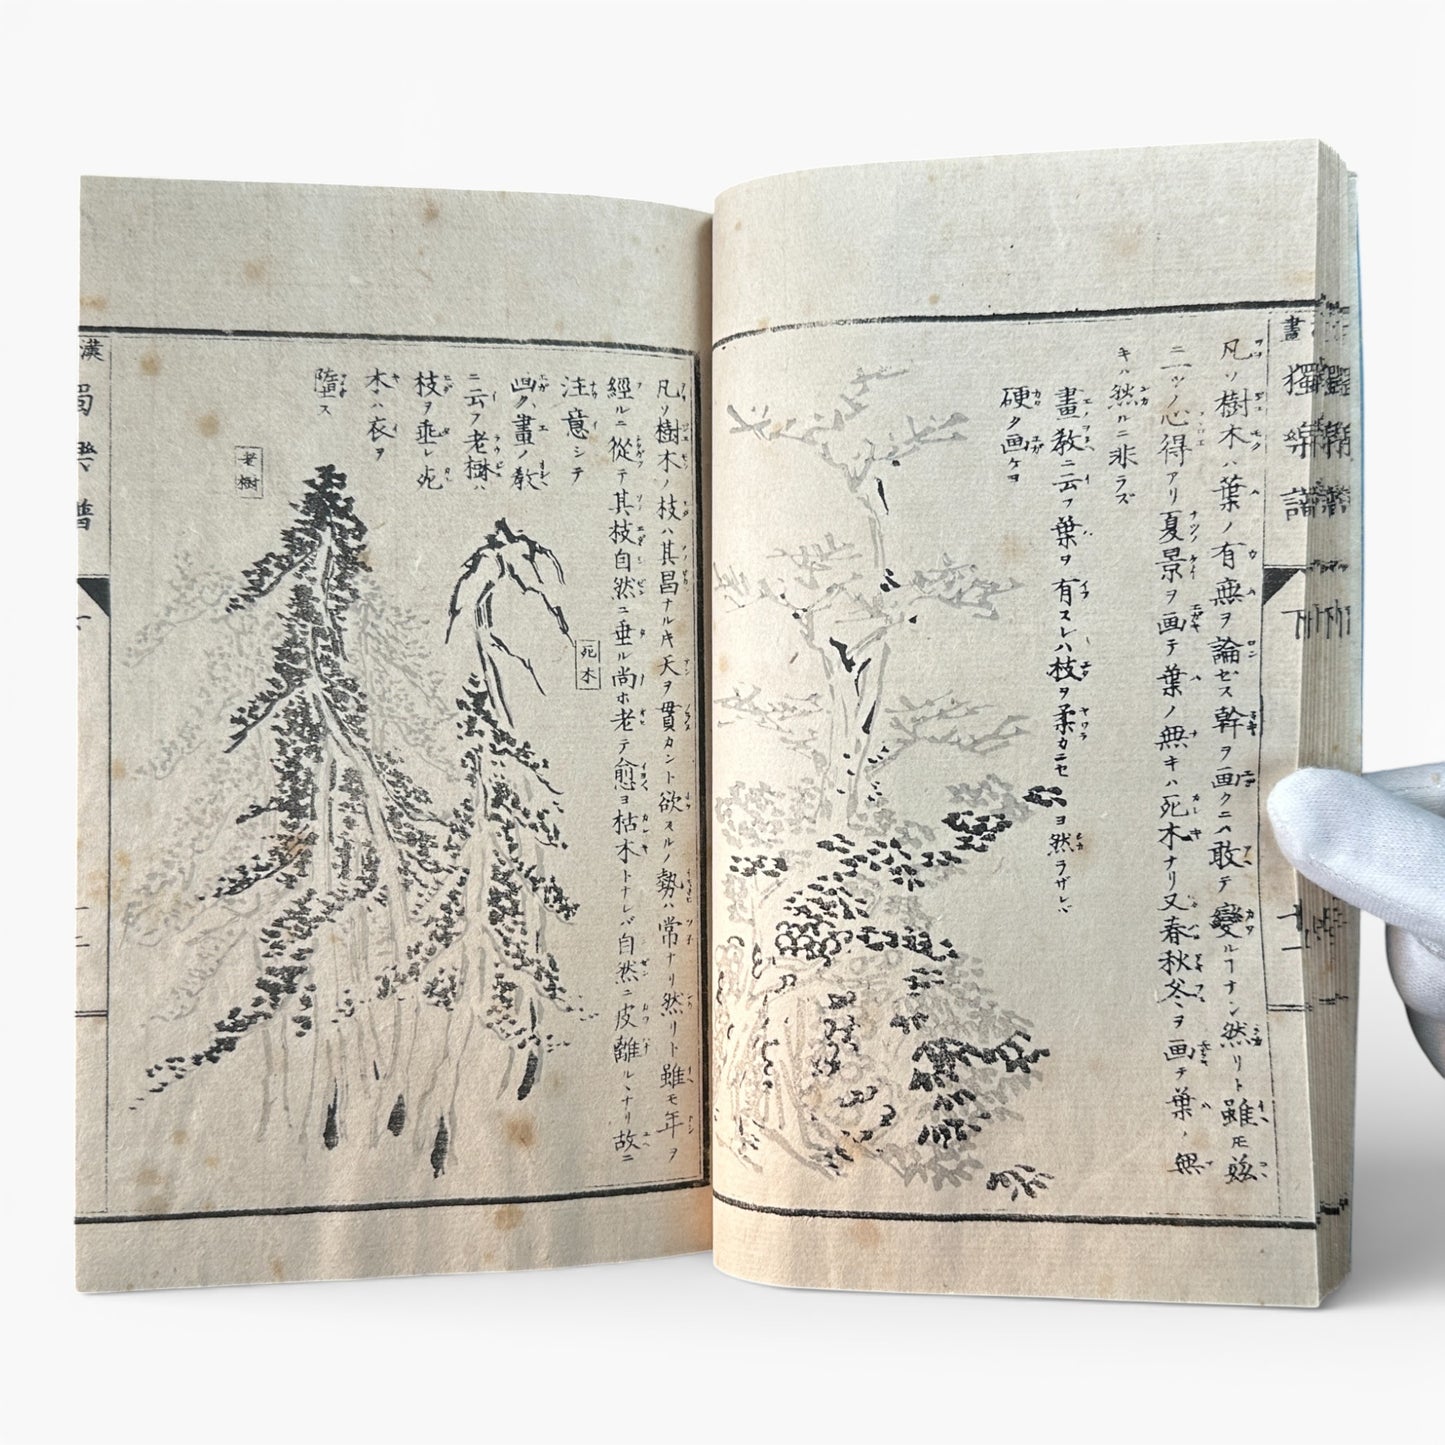 畫
獨樂譜
下
十一
凡ソ樹木ハ葉ノ有無ヲ論ゼス幹ヲ画クニハ敢テ變ルヿナシ然リト雖モ茲
ニ二ツノ心得アリ夏景ヲ画テ葉ノ無キハ死木ナリ又春秋冬ヲ画テ葉ノ無
キハ然ルニ非ラズ
畫教ニ云フ葉ヲ有スレハ枝ヲ柔カニセヨ然ラザレバ
硬ク画ケヨ
凡ソ樹木ノ枝ハ其昌ナルキ天ヲ貫カント欲スルノ勢ハ常ナリ然リト雖モ年ヲ
經ルニ從テ其枝自然ニ垂ル尚ホ老テ愈ヨ枯木トナレバ自然ニ皮離ルヽナリ故ニ
注意シテ
画ク畫ノ教
ニ云フ老樹ハ
枝ヲ垂レ死
木ハ衣ヲ
墮ス
死木
老樹
漢